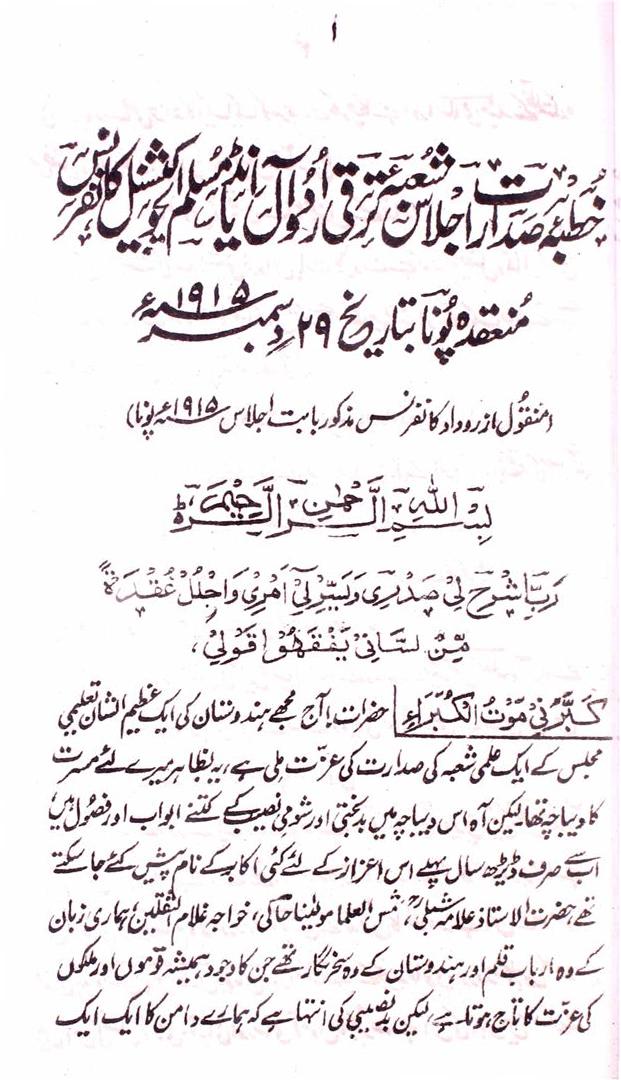 ۱
خطبۂ صدارت اجلاس شعبۂ ترقی اُردو آل انڈیا مسلم ایجوکیشنل کانفرنس
منعقدہ پُونا بتاریخ ۲۹ دسمبر ۱۹۱۵ء
(منقول از روداد کانفرنس مذکور بابت اجلاس ۱۹۱۵ء پونا)
بِسْمِ اللهِ الرَّحْمٰنِ الرَّحِيْمِ
رَبِّ اشْرَحْ لِيْ صَدْرِيْ وَيَسِّرْ لِيْ اَمْرِيْ وَاحْلُلْ عُقْدَةً
مِّنْ لِّسَانِيْ يَفْقَهُوْا قَوْلِيْ،
كَبَّرَنِيْ مَوْتُ الْكُبَرَاءِ حضرات! آج مجھے ہندوستان کی ایک عظیم الشان تعلیمی
مجلس کے ایک علمی شعبہ کی صدارت کی عزت ملی ہے، یہ بظاہر میرے لئے مسرت
کا دیباچہ تھا، لیکن آہ اس دیباچہ میں بدبختی اور شومی نصیب کے کتنے ابواب اور فصول ہیں
اب سے صرف ڈیڑھ سال پہلے اس اعزاز کے لئے کئی اکابر کے نام پیش کئے جا سکتے
تھے، حضرت الاستاذ علامہ شبلیؒ، شمس العلما مولینا حالی، خواجہ غلام الثقلین، ہماری زبان
کے وہ ارباب قلم اور ہندوستان کے وہ سخن نگار تھے جن کا وجود ہمیشہ قوموں اور ملکوں
کی عزت کا تاج ہوتا ہے، لیکن بدنصیبی کی انتہا ہے کہ ہمارے دامن کا ایک ایک